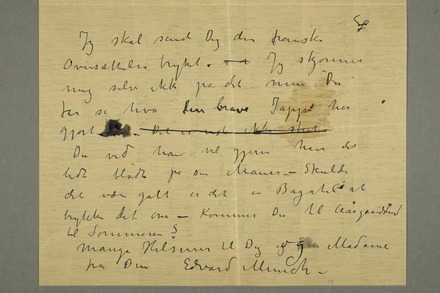 Jeg skal sende Dig den franske
Oversættelse trykt. Jeg skjønner
mig selv ikke på det men Du
får se hva den brave Tappet har
gjort
Du ved han vil gjerne
lidt om Manes — Skulde
det være galt er det en Bagatel at
trykke det om — Kommer Du til Aasgaardstrand
til Sommeren?
Mange Hilsener til Dig og Madame
fra Din Edvard Munch